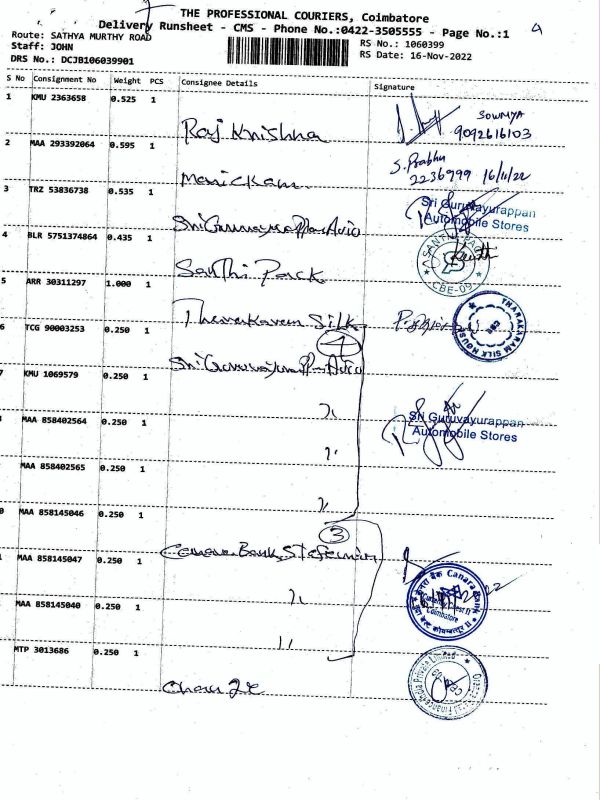 THE PROFESSIONAL COURIERS, Coimbatore
Delivery Runsheet - CMS - Phone No.:0422-3505555 - Page No.:1
Route: SATHYA MURTHY ROAD
Staff: JOHN
DRS No.: DCJB106039901
RS No.: 1060399
RS Date: 16-Nov-2022
S No Consignment No Weight PCS Consignee Details Signature
1 KMU 2363658 0.525 1
Raj Krishna
SOWMYA
9092616103
2 MAA 293392064 0.595 1
Manickam
S. Prabhu
2236999 16/11/22
3 TRZ 53836738 0.535 1
Sri Guruvayurappan Auto
Sri Guruvayurappan
Automobile Stores
4 BLR 5751374864 0.435 1
Santhi Park
CBE-09
5 ARR 30311297 1.000 1
Silk
THARAKARAM SILK HOUSE
CBE
6 TCG 90003253 0.250 1
4
Sri Guruvayurappan Auto
7 KMU 1069579 0.250 1
"
Sri Guruvayurappan
Automobile Stores
MAA 858402564 0.250 1
"
MAA 858402565 0.250 1
"
0 MAA 858145046 0.250 1
3
Canara Bank
MAA 858145047 0.250 1
"
केनरा बैंक Canara Bank
Coimbatore
MAA 858145040 0.250 1
"
MTP 3013686 0.250 1
Private Limited